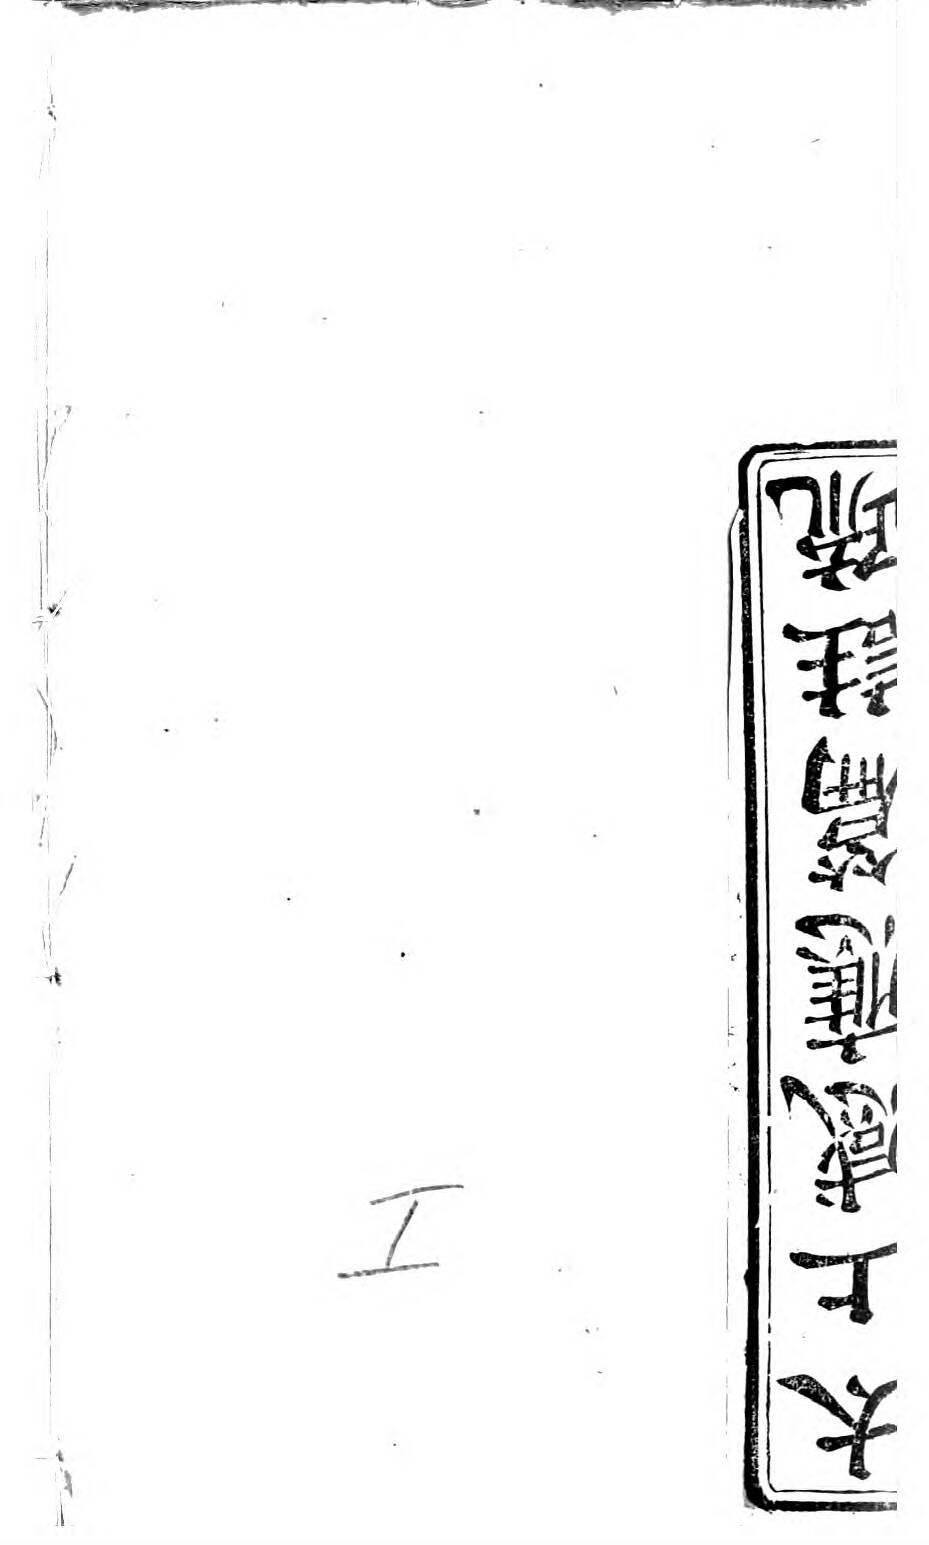 太上感應篇註疏
I